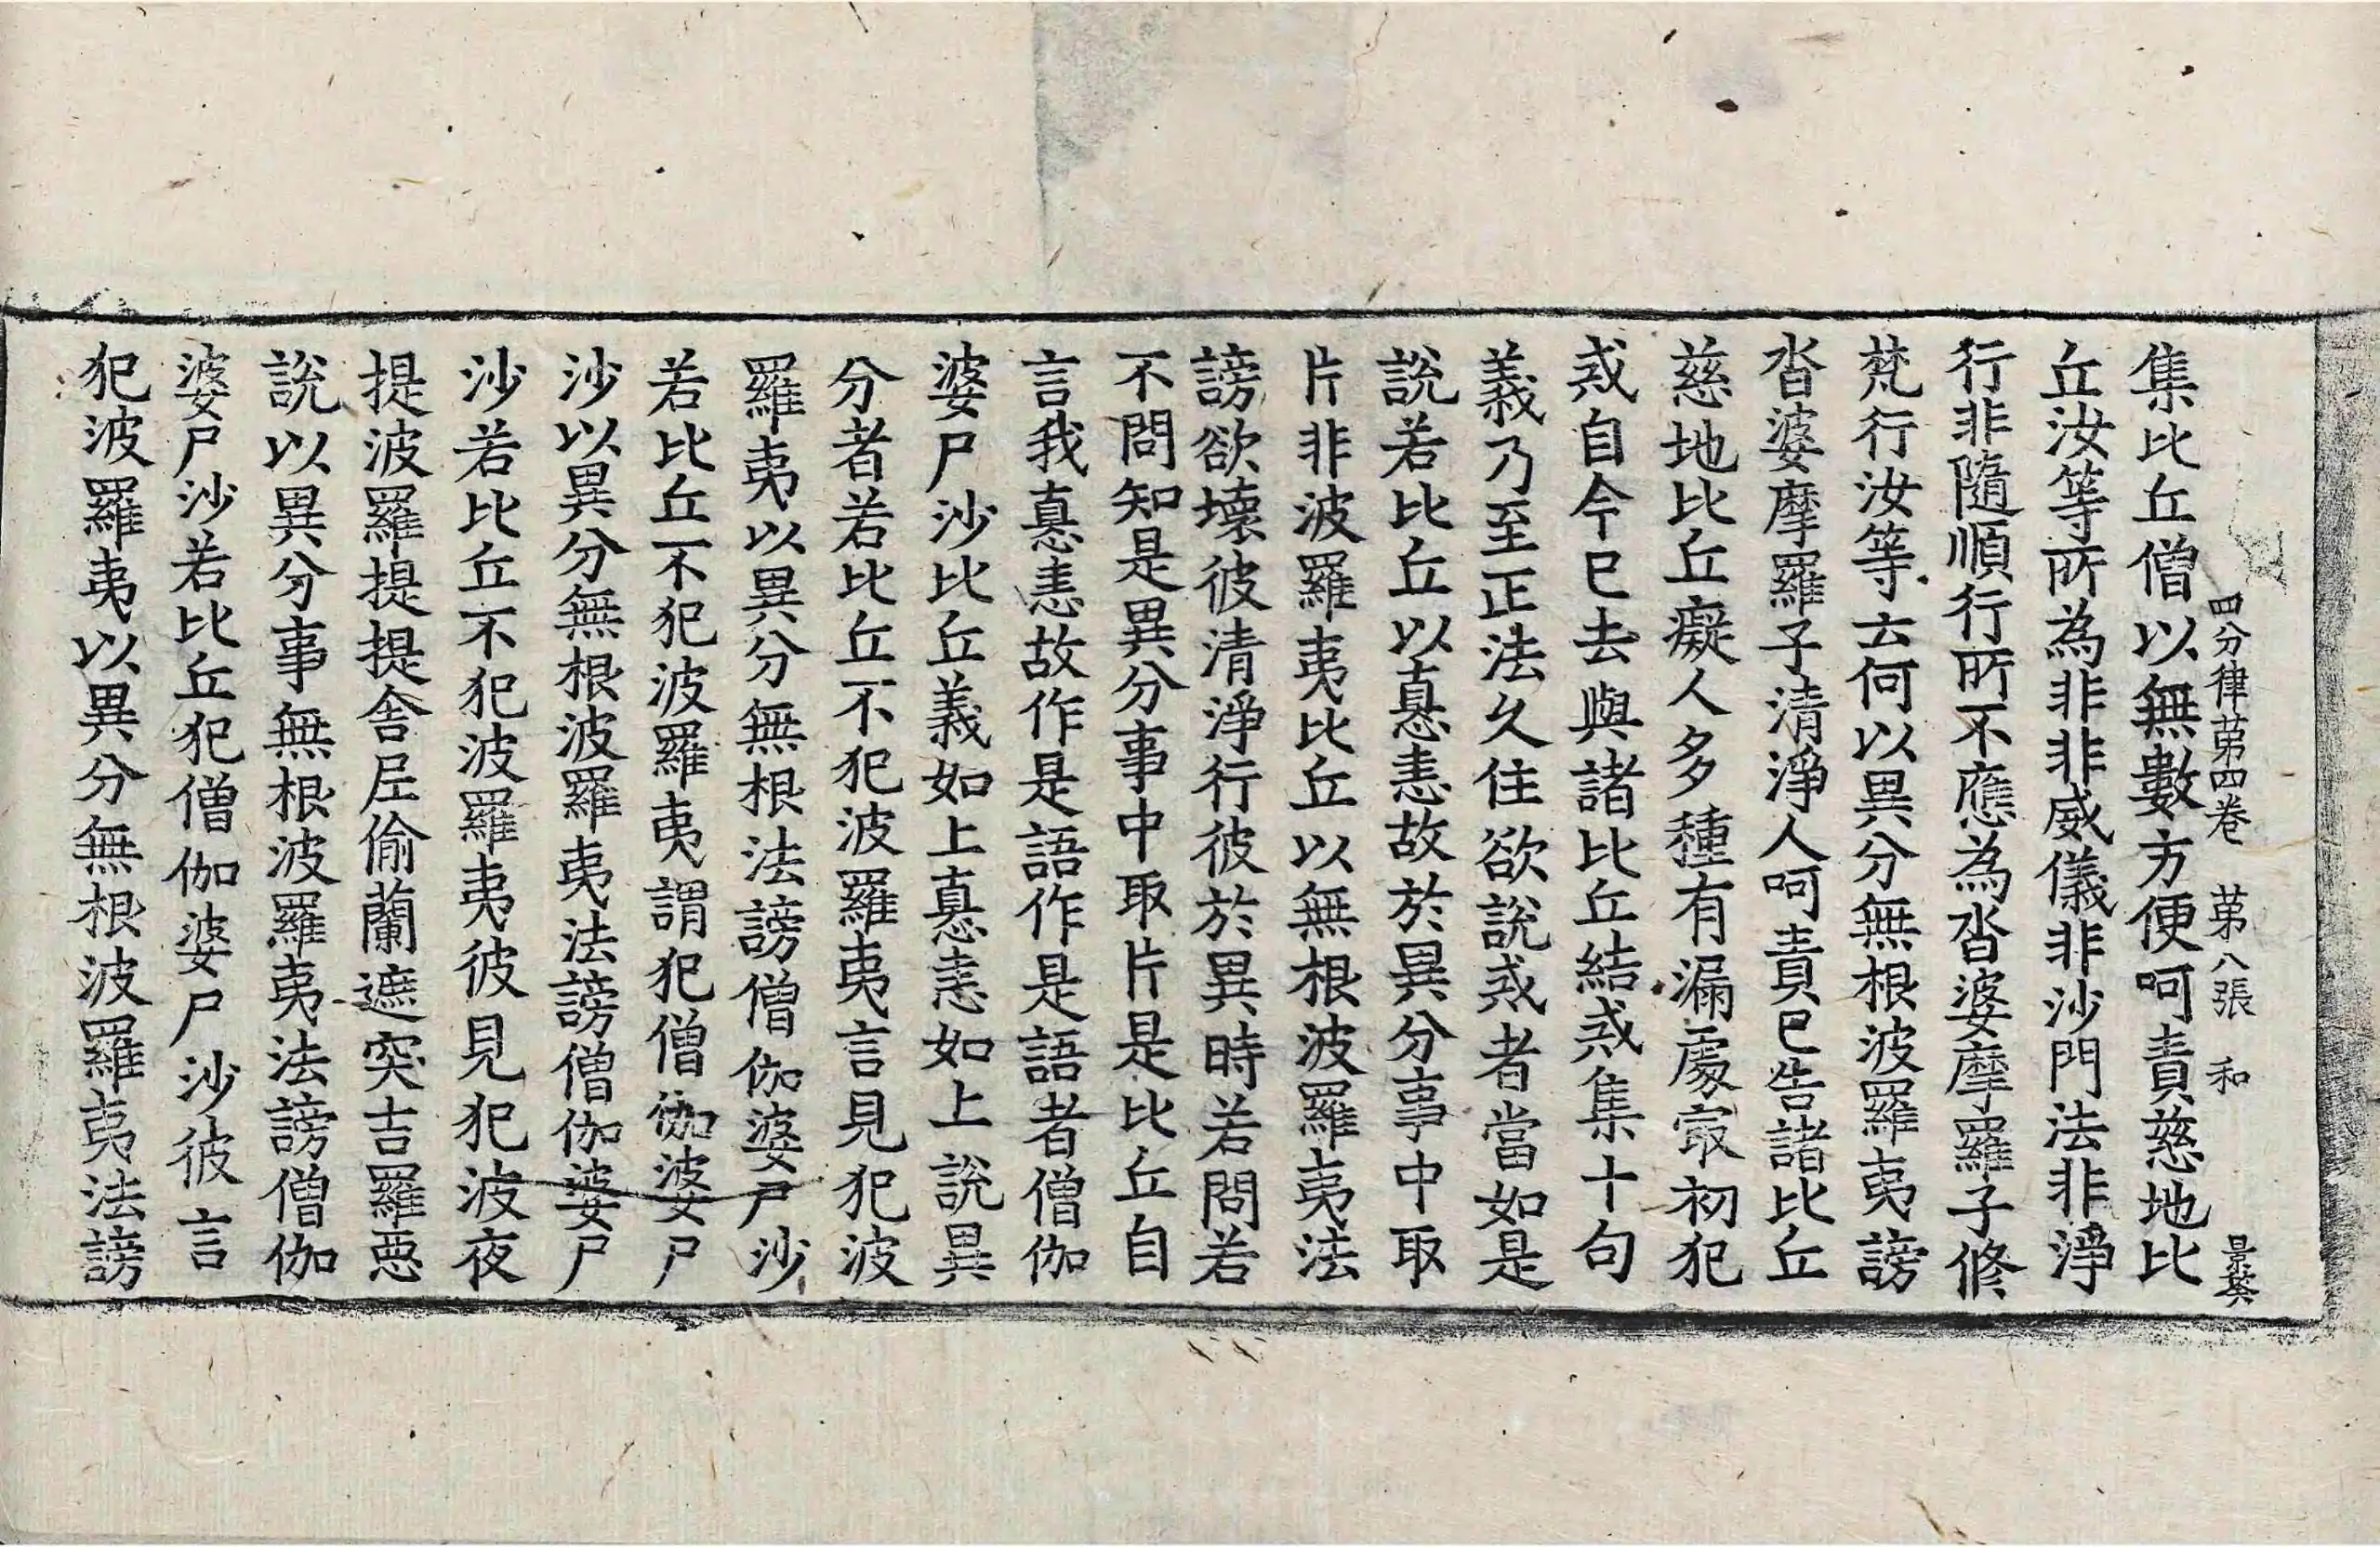 四分律苐四卷　苐八張　和　景㷗
集比丘僧以無數方便呵責慈地比
丘汝等所為非非威儀非沙門法非淨
行非隨順行所不應為沓婆摩羅子修
梵行汝等云何以異分無根波羅夷謗
沓婆摩羅子清淨人呵責已告諸比丘
慈地比丘癡人多種有漏處㝡初犯
戒自今已去與諸比丘結戒集十句
義乃至正法久住欲說戒者當如是
說若比丘以恚故於異分事中取
片非波羅夷比丘以無根波羅夷法
謗欲壞彼清淨行彼於異時若問若
不問知是異分事中取片是比丘自
言我恚故作是語作是語者僧伽
婆尸沙比丘義如上恚如上說異
分者若比丘不犯波羅夷言見犯波
羅夷以異分無根法謗僧伽婆尸沙
若比丘不犯波羅夷謂犯僧伽婆尸
沙以異分無根波羅夷法謗僧伽婆尸
沙若比丘不犯波羅夷彼見犯波夜
提波羅提提舍尼偷蘭遮突吉羅惡
說以異分事無根波羅夷法謗僧伽
婆尸沙若比丘犯僧伽婆尸沙彼言
犯波羅夷以異分無根波羅夷法謗